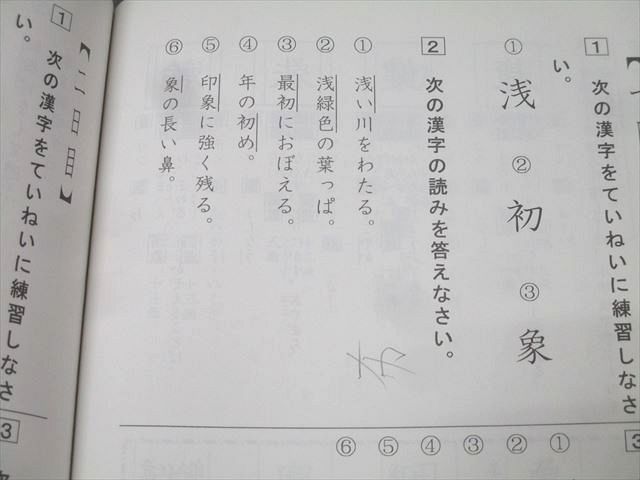 【一
1 次の漢字をていねいに練習しなさ
い。
① 浅 ② 初 ③ 象
2 次の漢字の読みを答えなさい。
① 浅い川をわたる。
② 浅緑色の葉っぱ。
③ 最初におぼえる。
④ 年の初め。
⑤ 印象に強く残る。
⑥ 象の長い鼻。
3
①
②
③
④
⑤
⑥
【二日目】
1 次の漢字をていねいに練習しなさ
い。
3